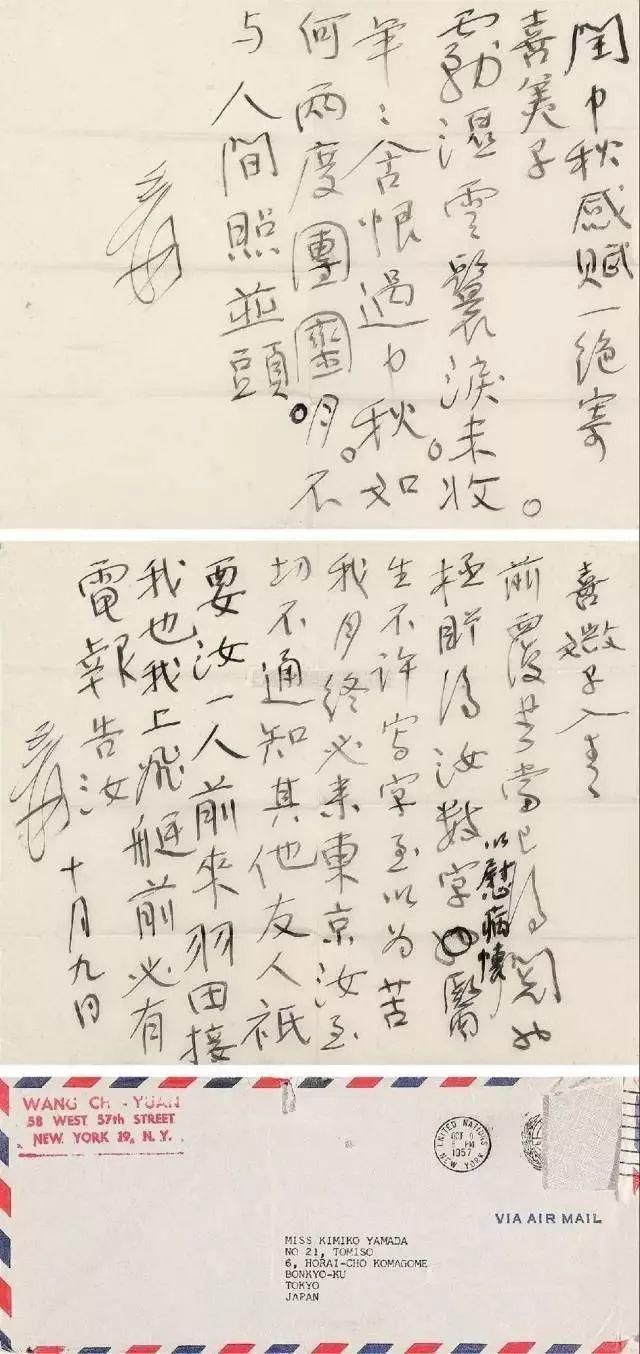 閏中秋感賦一絕寄
喜美子
霧濕雲鬟淚未收。
年〻含恨過中秋。如
何兩度團圞月。不
与人間照並頭
爰
喜媺子
前覆書當已得覽
極盼得汝數字以慰病懷醫
生不許写字至以为苦
我月終必来東京汝至
切不通知其他友人祇
要汝一人前來羽田接
我也我上飛艇前必有
電報告汝
爰
十月九日
WANG CHI-YUAN
58 WEST 57th STREET
NEW YORK 19, N. Y.
UNITED NATIONS
OCT 9
PM
1957
NEW YORK
VIA AIR MAIL
MISS KIMIKO YAMADA
NO 21, TOMISO
6, HORAI-CHO KOMAGOME
BONKYO-KU
TOKYO
JAPAN